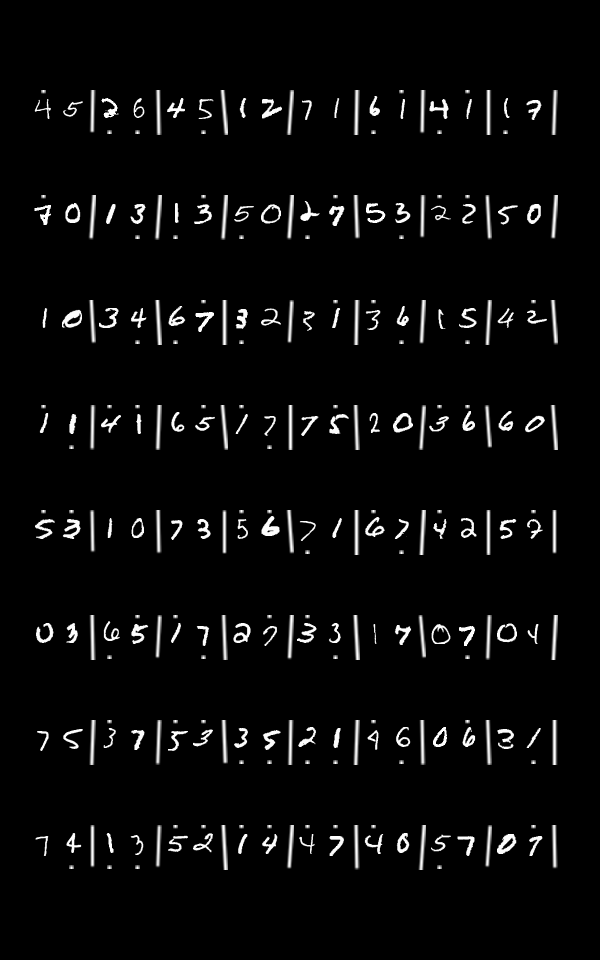 4 5 | 2 6 | 4 5 | 1 2 | 7 1 | 6 1 | 4 1 | 1 7 |
7 0 | 1 3 | 1 3 | 5 0 | 2 7 | 5 3 | 2 2 | 5 0 |
1 0 | 3 4 | 6 7 | 3 2 | 3 1 | 3 6 | 1 5 | 4 2 |
1 1 | 4 1 | 6 5 | 1 7 | 7 5 | 2 0 | 3 6 | 6 0 |
5 3 | 1 0 | 7 3 | 5 6 | 7 1 | 6 7 | 4 2 | 5 7 |
0 3 | 6 5 | 1 7 | 2 7 | 3 3 | 1 7 | 0 7 | 0 4 |
7 5 | 3 7 | 5 3 | 3 5 | 2 1 | 4 6 | 0 6 | 3 1 |
7 4 | 1 3 | 5 2 | 1 4 | 4 7 | 4 0 | 5 7 | 0 7 |